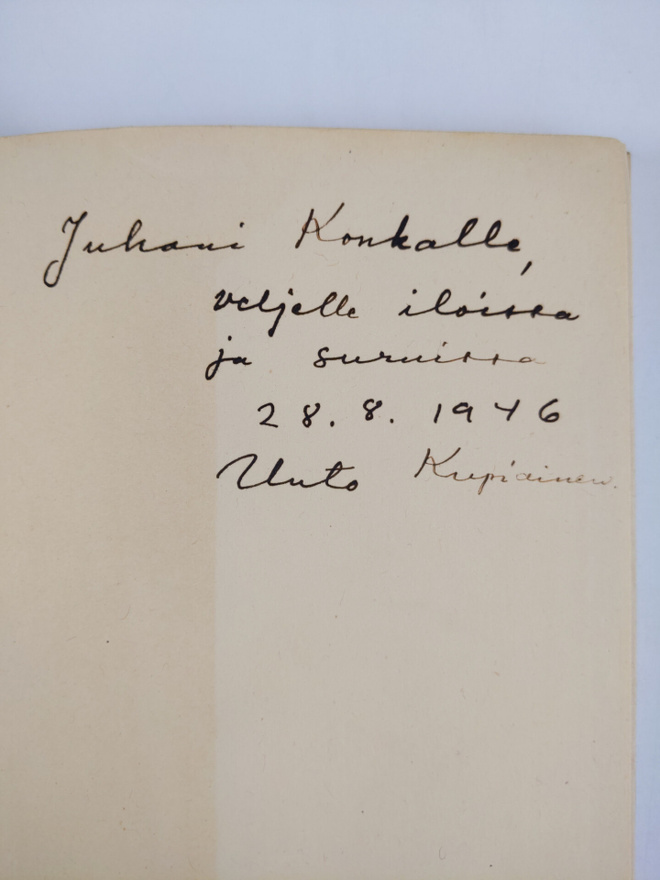 Juhani Konkalle,
veljelle iloissa
ja suruissa
28. 8. 1946
Unto Kupiainen.